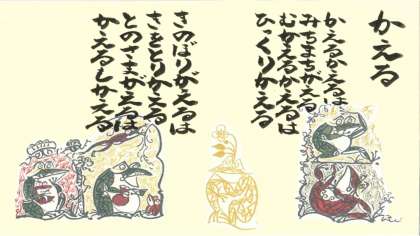 かえる
かえるかえるは
みちまちがえる
むかえるかえるは
ひっくりかえる
きのぼりがえるは
きをとりかえる
とのさまがえるは
かえるもかえる